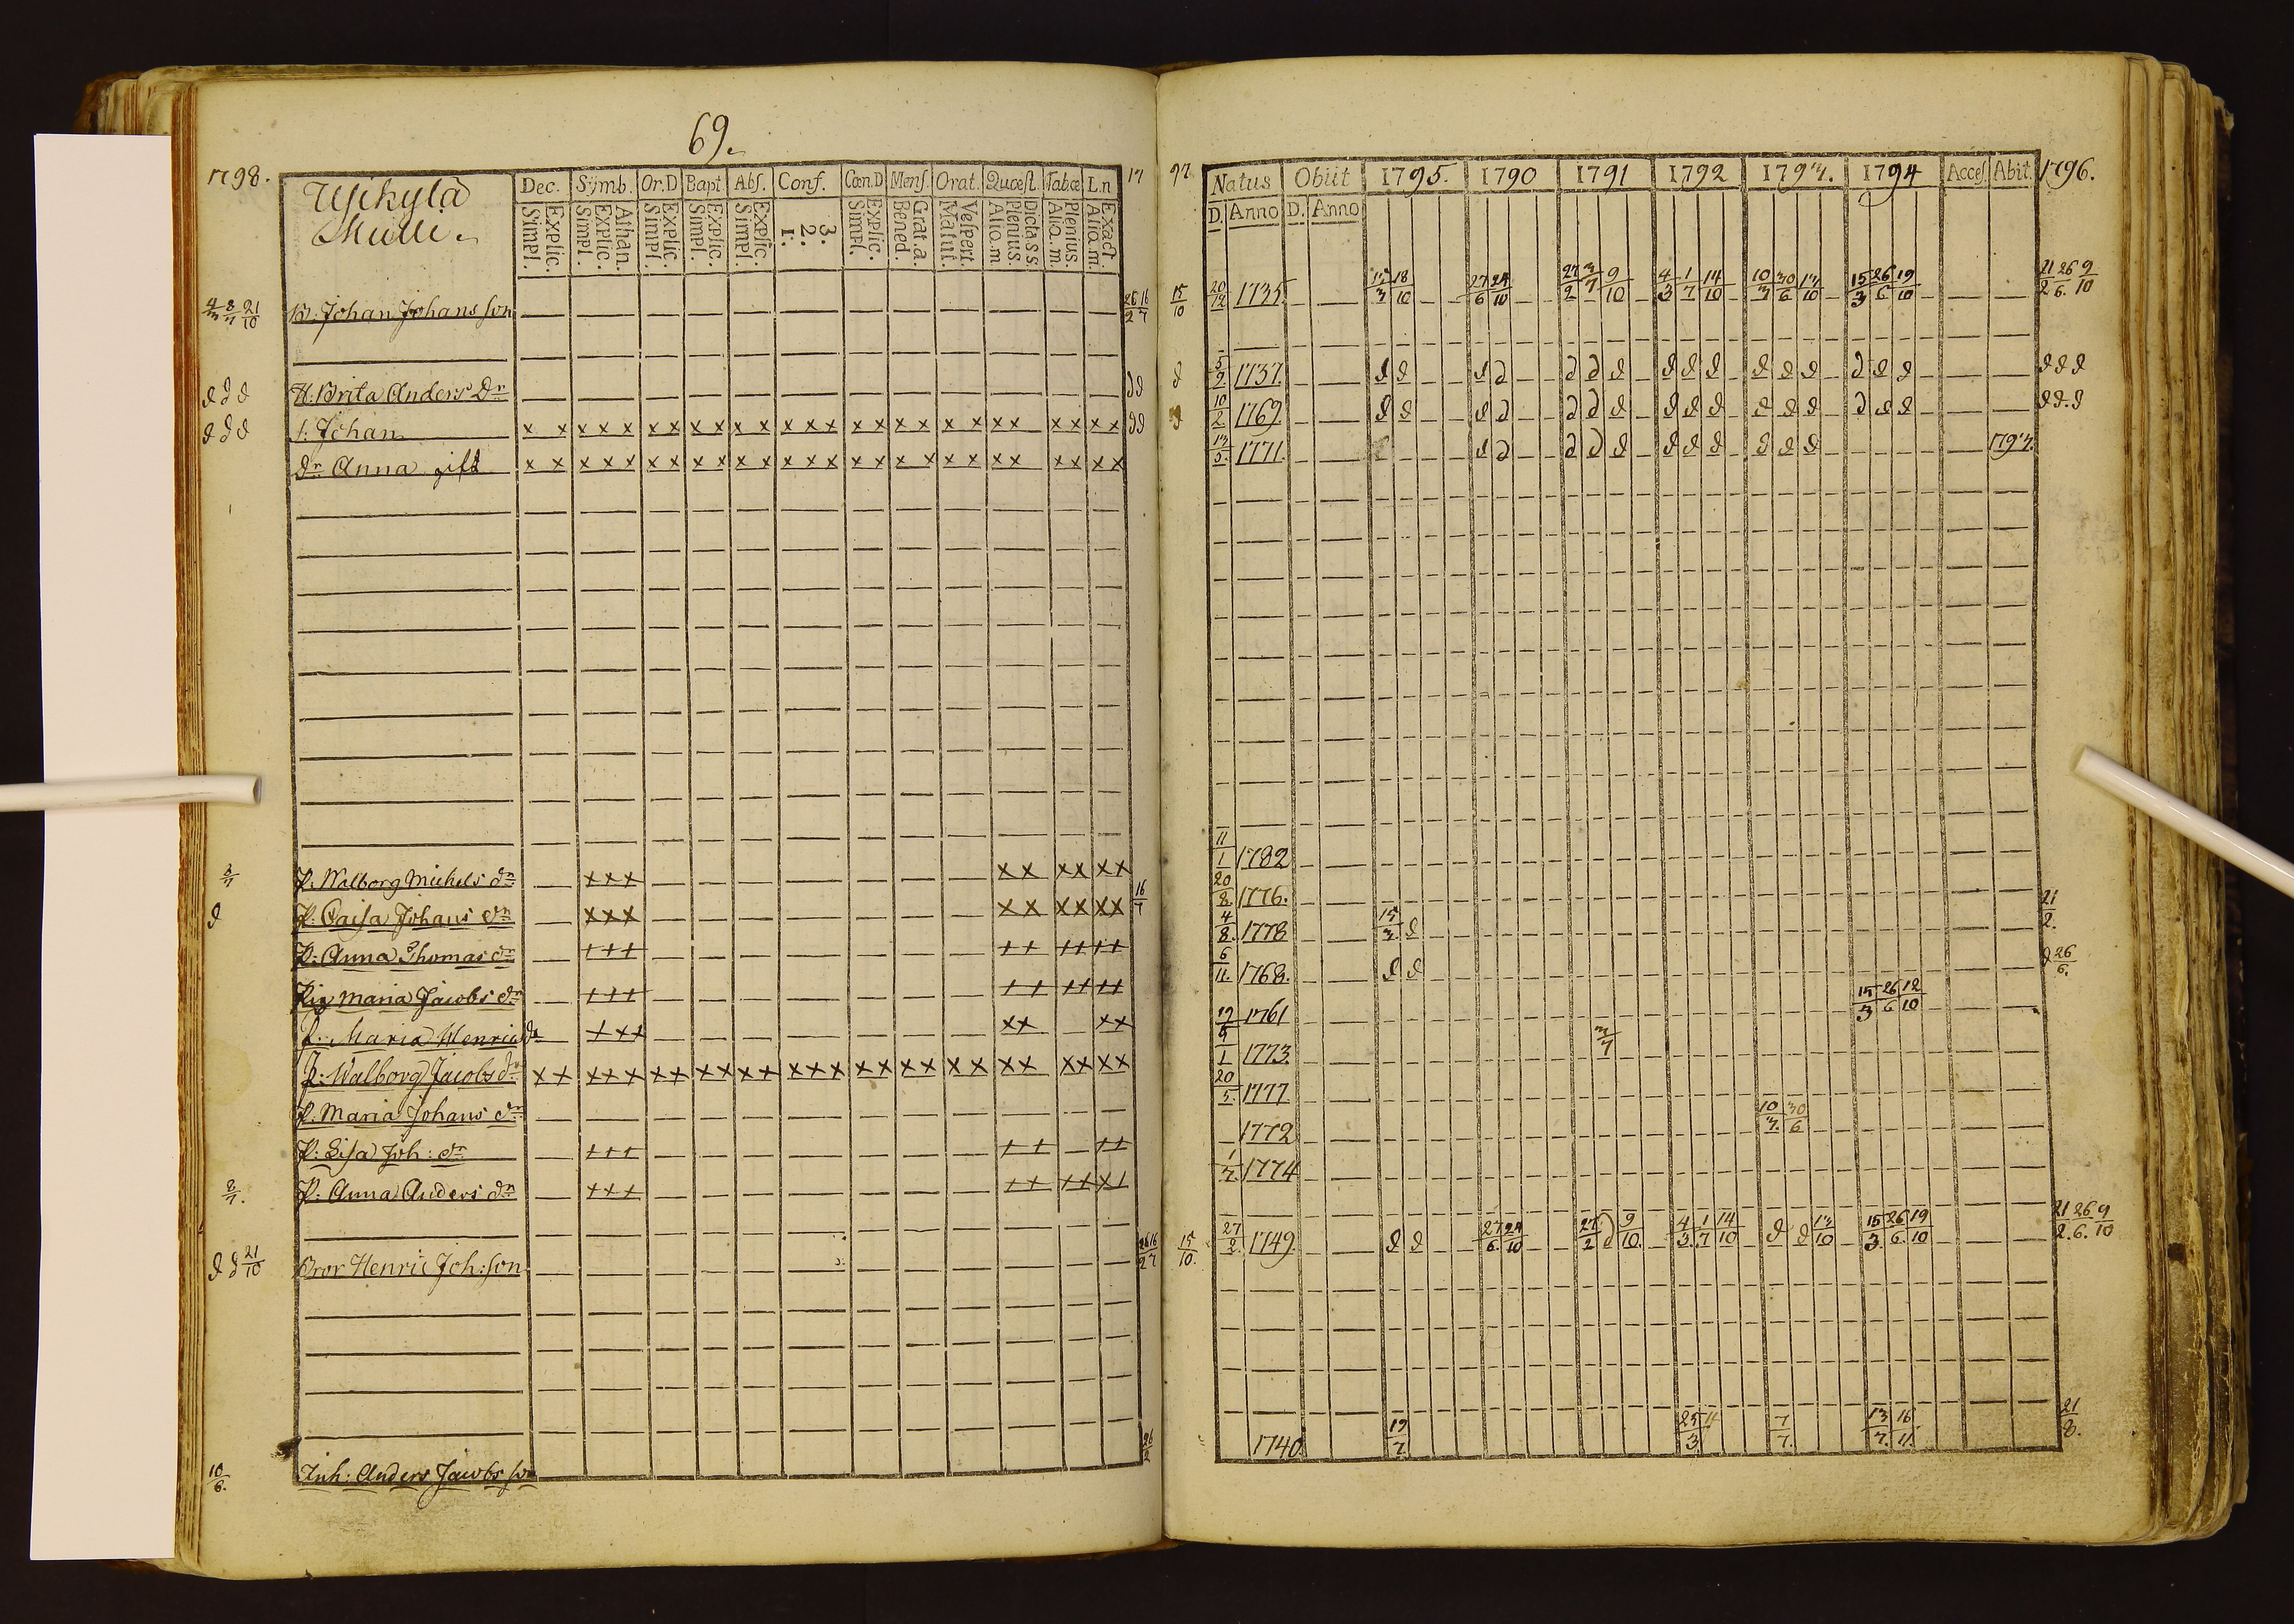 69.
1798.
Dec. Symb. Or.D Bapt. Abs. Conf. Cœn.D Mens. Orat. Quæst. Tab.œ L.n
17
Mulli.
Explic. Simpl. Athan. Explic. Simpl. Explic. Simpl. Explic. Simpl. Explic. Simpl. 3. 2. 1. Explic. Simpl. Grat.a. Bened. Vespert. Matut. Dicta S S. Plenius. Aliq.m Plenius. Aliq.m. Exact. Aliq.m.
4/3 8/7 21/10 B: Johan Johans son 26/2 16/7
∂ ∂ ∂ H: Brita Anders Dr ∂ ∂
∂ ∂ ∂ S: Johan x x x x x x x x x x x x x x x x x x x x x x x x x x ∂ ∂
Dr Anna gift x x x x x x x x x x x x x x x x x x x x x x x x x x
8/7 P: Walborg Michels dr x x x x x x x x x
∂ P: Caisa Johans dr x x x x x x x x x 16/7
P: Anna Thomas dr
Pig Maria Jacobs dr
P: Maria Henrics dr
P: Walborg Jacobs dr x x x x x x x x x x x x x x x x x x x x x x x x x x
P: Maria Johans dr
P: Lisa Joh: dr
8/7. P: Anna Anders dr
∂ ∂ 21/10 Bror Henric Joh: son 26/2 16/7
10/6. Inh: Anders Jacobs son 26/2
97 Natus Obiit 1795. 1790 1791 1792 1793. 1794 Acces. Abit. 1796.
D. Anno D. Anno
15/10 20/12 1735. 15/3 18/10 27/6 24/10 27/2 3/7 9/10 4/3 1/7 14/10 10/3 30/6 13/10 15/3 26/6 19/10 21/2 26/6. 9/10
∂ 5/9. 1737. ∂ ∂ ∂ ∂ ∂ ∂ ∂ ∂ ∂ ∂ ∂ ∂ ∂ ∂ ∂ ∂ ∂ ∂ ∂
∂ 10/2. 1769. ∂ ∂ ∂ ∂ ∂ ∂ ∂ ∂ ∂ ∂ ∂ ∂ ∂ ∂ ∂ ∂ ∂ ∂. ∂
13/5. 1771. ∂ ∂ ∂ ∂ ∂ ∂ ∂ ∂ ∂ ∂ ∂ 1793.
11/1 1782
20/8. 1776. 21/2.
4/8. 1778 15/3. ∂
6/11. 1768. ∂ ∂ ∂ 26/6.
1761 15/3 26/6 12/10
1773. 3/7
20/5. 1777
1772 10/3. 30/6
1/7. 1774
15/10. 27/2. 1749. ∂ ∂ 27/6. 24/10 27/2 ∂ 9/10. 4/3. 1/7 14/10 ∂ ∂ 13/10 15/3. 26/6. 19/10 21/2. 26/6. 9/10
1740. 19/7. 25/3 7/7. 13/7. 16/11. 21/8.